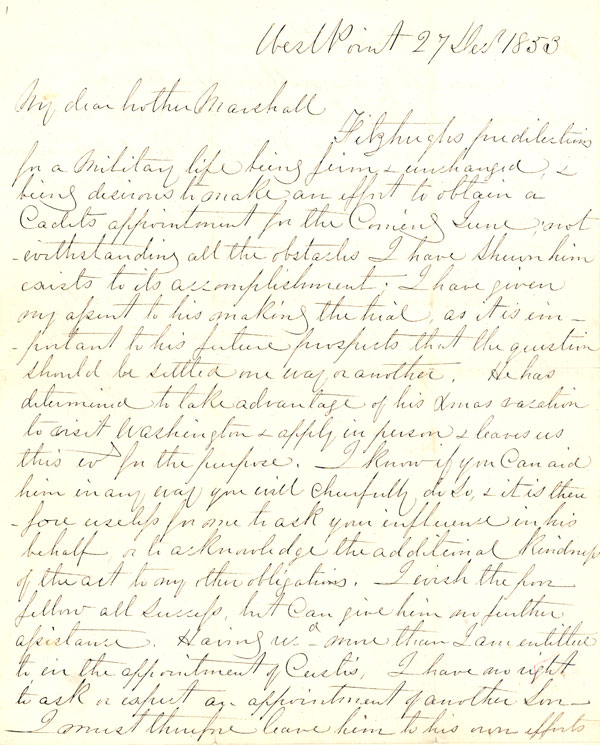 West Point 27 Decr 1853
My dear brother Marshall
Fitzhughs predilections
for a Military life being firm & unchanged, &
being desirous to make an effort to obtain a
Cadets appointment for the Coming June, not
-withstanding all the obstacles I have shewn him
exists to its accomplishment; I have given
my assent to his making the trial, as it is im-
-portant to his future prospects that the question
should be settled one way or another. He has
determined to take advantage of his Xmas vacation
to visit Washington & apply in person & leaves us
this for the purpose. I know if you Can aid
him in any way you will cheerfully do so, & it is there
-fore useless for me to ask your influence in his
behalf, or to acknowledge the additional kindness
of the act to my other obligations. I wish the poor
fellow all success, but Can give him no further
assistance. Having more than I am entitled
to in the appointment of Custis, I have no right
to ask or expect an appointment of another Son—
I must therefore leave him to his own efforts